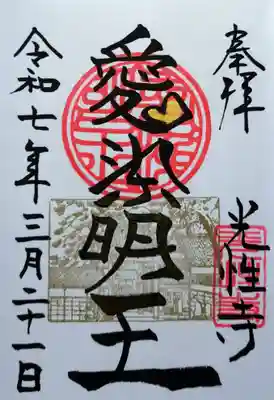 奉拝
愛染明王
光性寺
令和七年三月二十一日